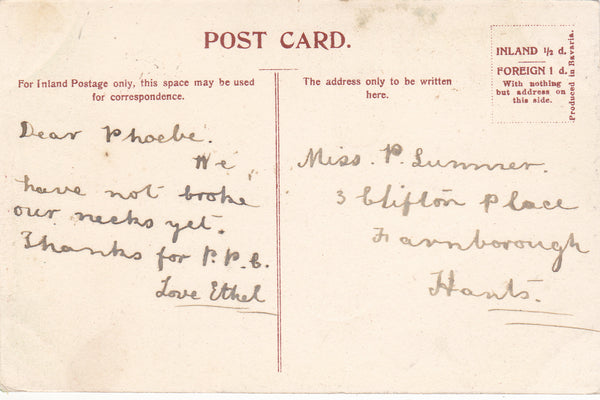 POST CARD.
For Inland Postage only, this space may be used
for correspondence.
The address only to be written
here.
INLAND ½ d.
FOREIGN 1 d.
With nothing
but address on
this side.
Produced in Bavaria.
Dear Phoebe.
We
have not broke
our necks yet.
Thanks for P.P.C.
Love Ethel
Miss. P. Sumner.
3 Clifton Place
Farnborough
Hants.